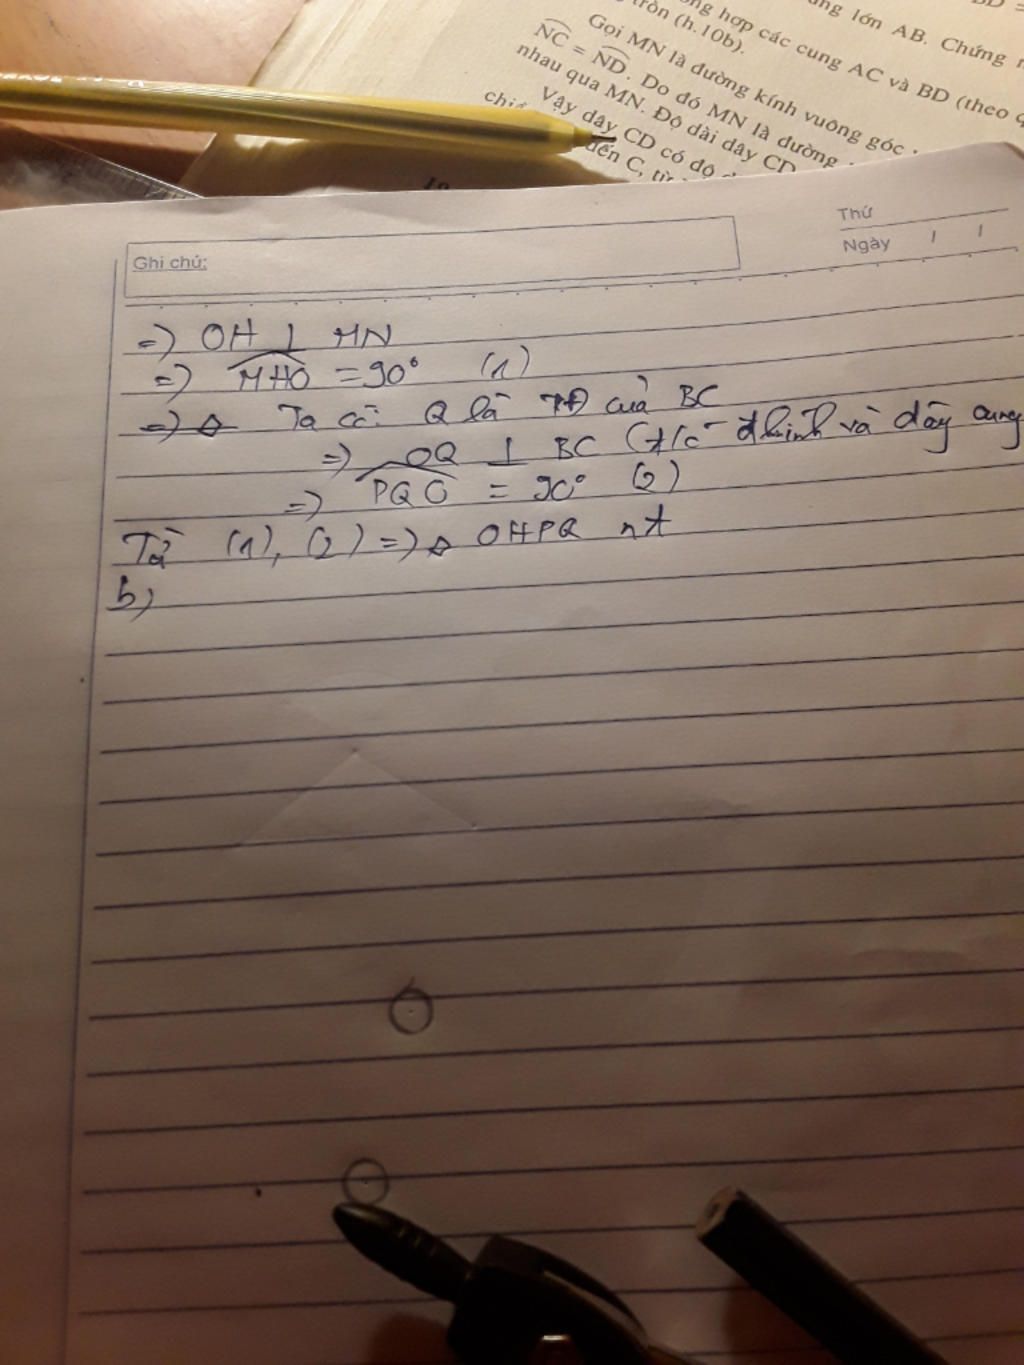 BD =
ung lớn AB. Chứng
ong hợp các cung AC và BD (theo
tròn (h.10b).
Gọi MN là đường kính vuông góc
NC = ND. Do đó MN là đường
nhau qua MN. Độ dài dây CD
Vậy dây CD có độ
đến C, từ
Thứ
Ngày / /
Ghi chú:
=) OH ⊥ MN
=) MHO = 90° (1)
Ta có: Q là TĐ của BC
=) OQ ⊥ BC (t/c đkính và dây cung
=) PQO = 90° (2)
Từ (1), (2) =) OHPQ nt
b)